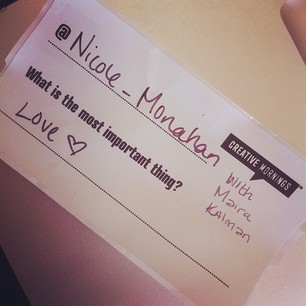 @Nicole-Monahan
What is the most important thing?
Love ♡
CREATIVE MORNINGS
With
Maira
Kalman